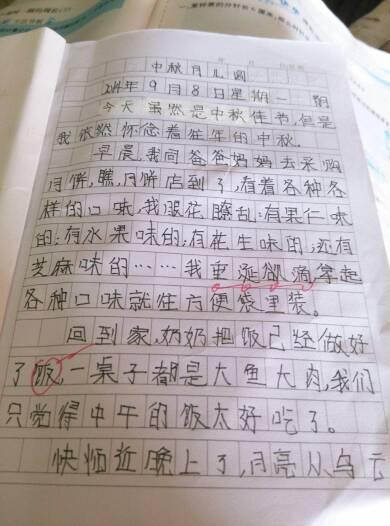 中秋月儿圆
2014年9月8日星期一 阴
今天虽然是中秋佳节,但是
我依然怀念着往年的中秋。
早晨,我同爸爸妈妈去采购
月饼,瞧,月饼店到了,有着各种各
样的口味,我眼花瞭乱:有果仁味
的;有水果味的;有花生味的;还有
芝麻味的……我垂涎欲滴拿起
各种口味就往方便袋里装。
回到家,奶奶把饭已经做好
了饭,一桌子都是大鱼大肉,我们
只觉得中午的饭太好吃了。
快近晚上了,月亮从乌云